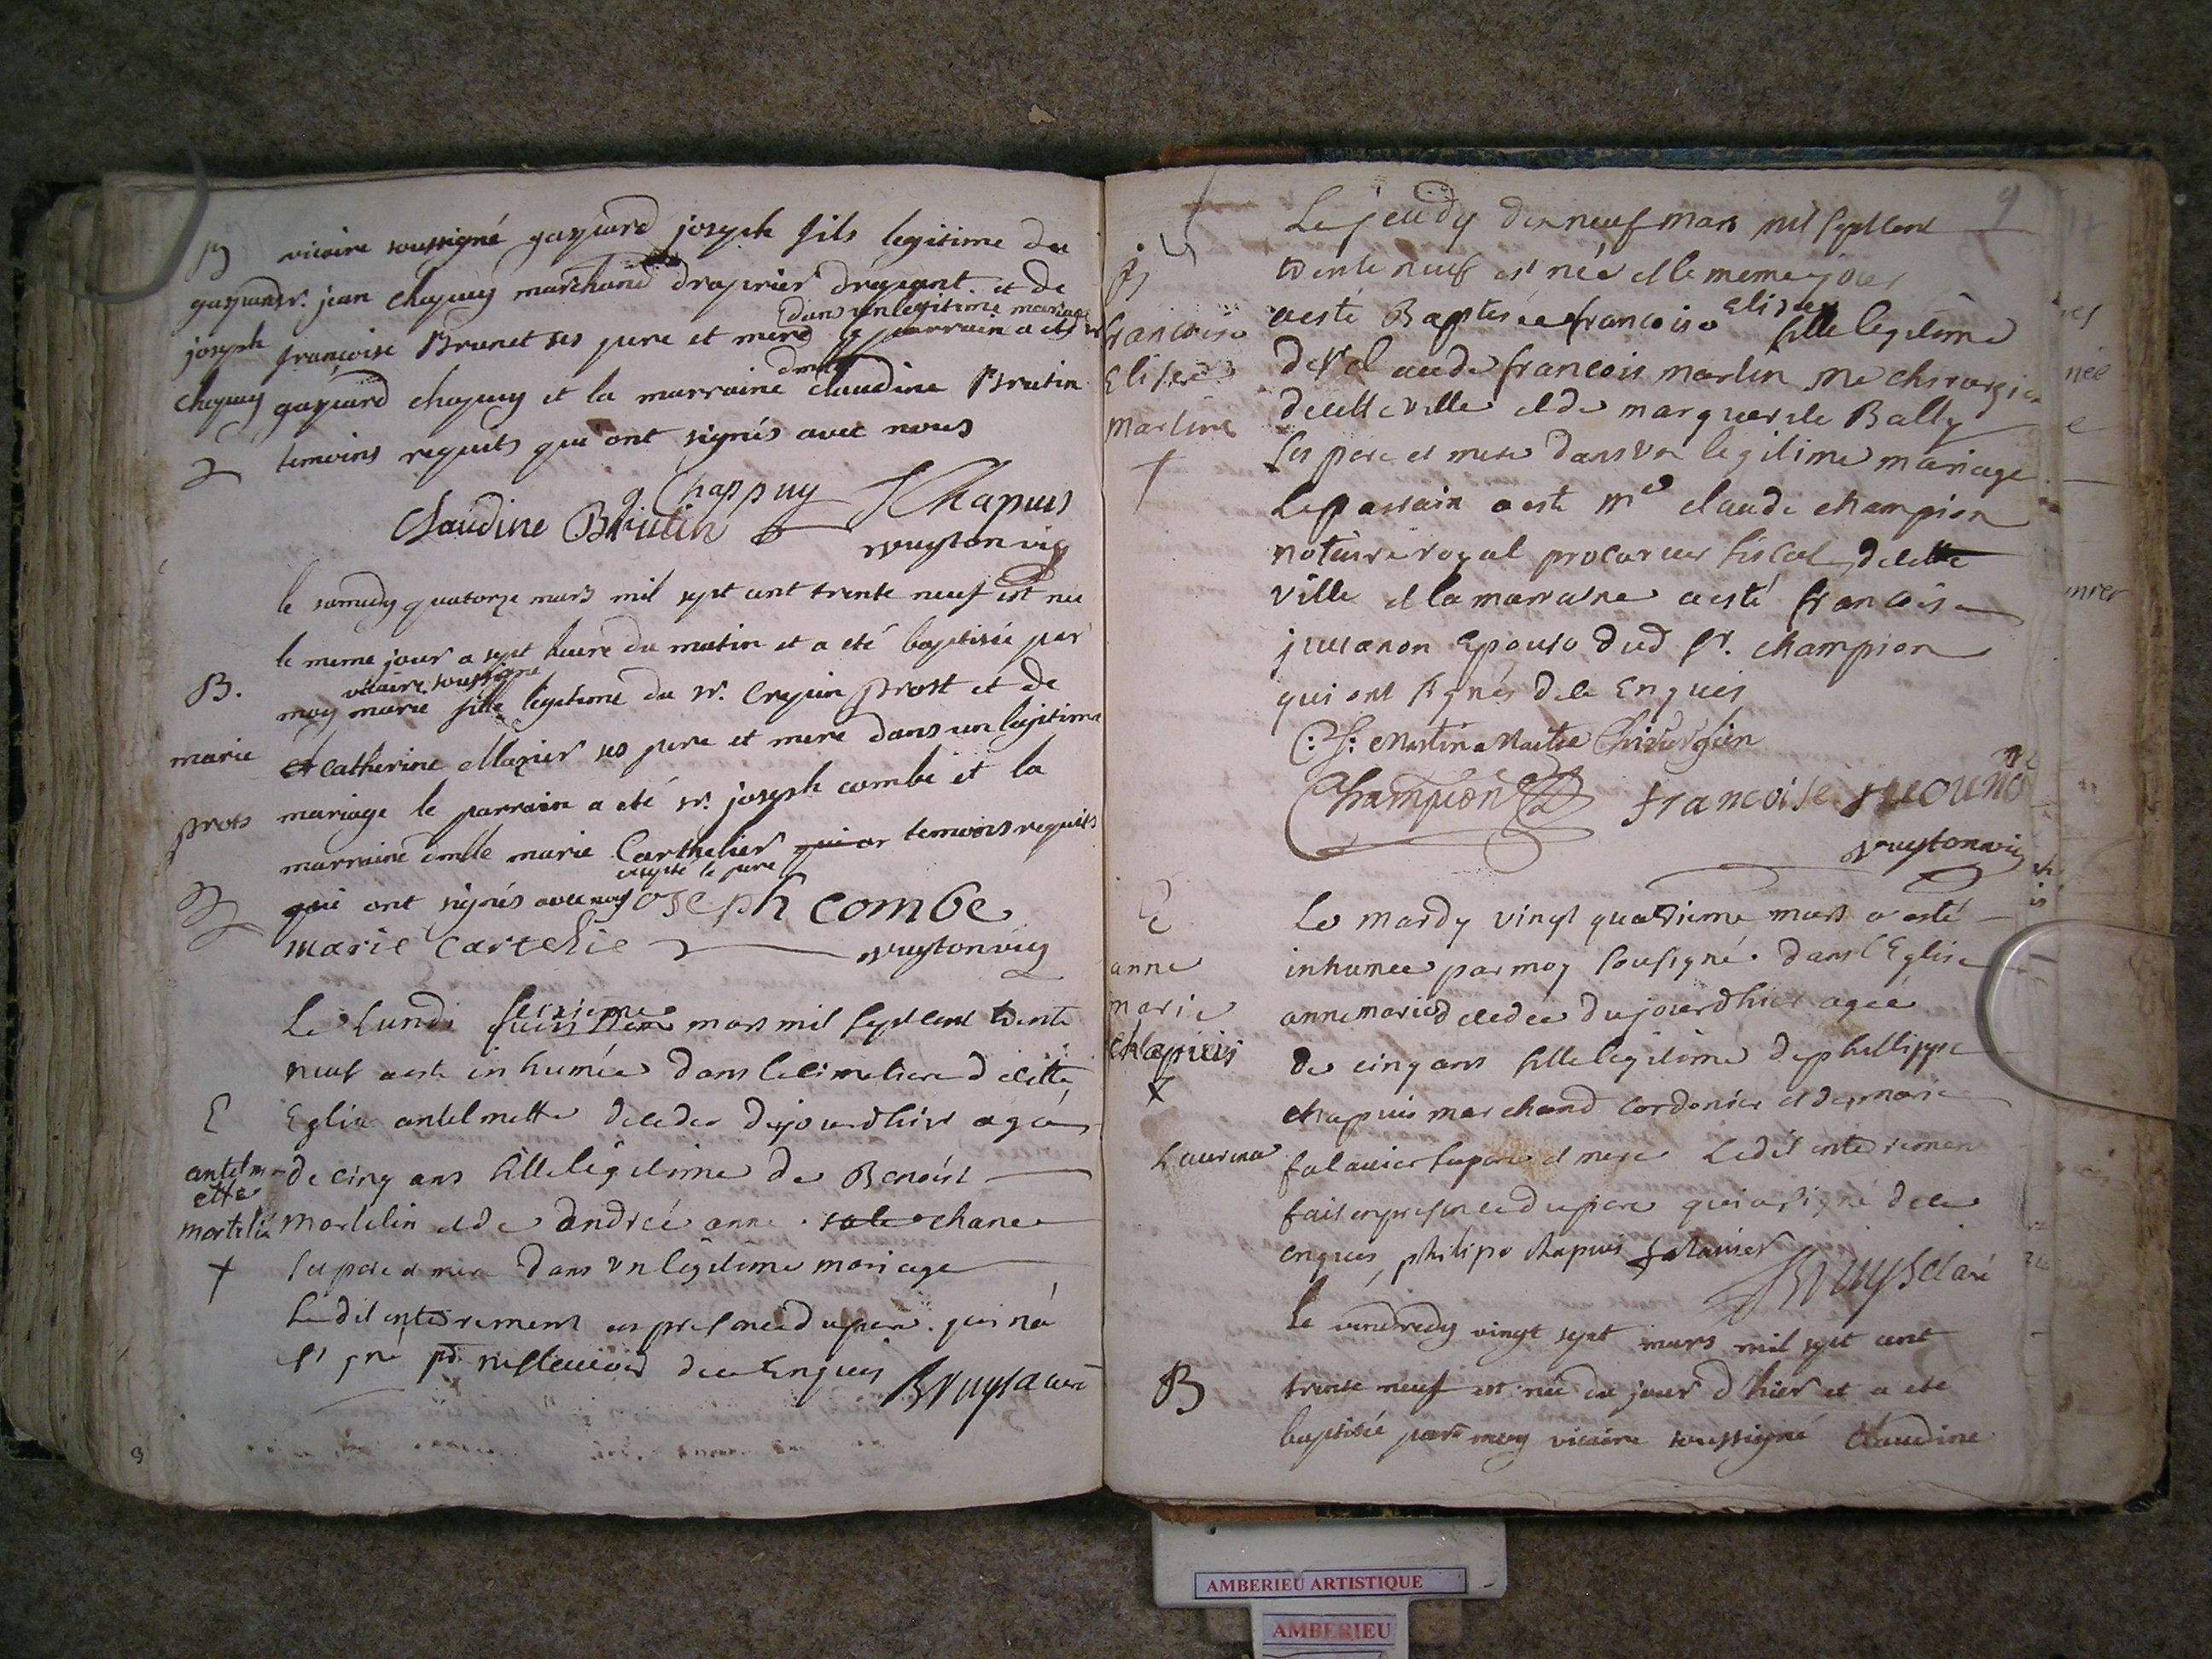 B vicaire soussigné gaspard joseph fils legitime du
gaspard sr. jean chapuy marchand drapier drapant et de
dans un legitime mariage
joseph françoise Brunet ses pere et mere le parrain a eté sr
chapuy gaspard chapuy et la marraine dmlle claudine Brutin
temoins requits qui ont signés avec nous
g Chappuy JChapuis
Claudine Brutin
vuyton vic
le samedy quatorze mars mil sept cent trente neuf est née
le meme jour a sept heure du matin et a eté baptisée par
vicaire soussigné
B. moy marie fille legitime du sr. Crepin prost et de
marie catherine Mazier ses pere et mere dans un legitime
prots mariage le parrain a eté sr. joseph combe et la
marraine dmlle marie Carthelier temoins requits
excepté le pere
qui ont signés avec nous joseph combe
marie cartelie vuyton vic
Le Lundi seizieme mars mil sept cent trente
neuf a esté inhumée dans le cimetiere de cette
E Eglise antelmette decedee du jourdhier agée
antelm- de cinq ans fille legitime de Benoist
ette
mortelin mortelin et de andrée anne chane
ses pere et mere dans un legitime mariage
Ledit enterrement en presence du pere qui n'a
signé de ce Enquis Bruyset curé
9
Le jeudy dix neuf mars mil sept cent
trente neuf est née et le meme jour
a esté Baptisée francoise Elizee fille legitime
francoise
Elisee de sr claude francois martin me chirurgien
martine de cette ville et de marguerite Bally
ses pere et mere dans un legitime mariage
Le parrain a esté me claude champion
notaire royal procureur fiscal de cette
ville et la marraine a esté francoise
Epouse dud sr. champion
qui ont signés de ce Enquis
C: f: Martin Maitre Chirurgien
Champion francoise
vuyton vic
E Le mardy vingt quatrieme mars a esté
anne inhumee par moy sousigné dans l'Eglise
marie anne marie decedee du jourdhier agée
chapuis de cinq ans fille legitime de phillippe
chapuis marchand cordonier et de marie
falavier ses pere et mere Ledit enterremen
fait en presence du pere qui a signé de ce
enquis, philipe chapuis falavier
Bruyset curé
Le vendredy vingt sept mars mil sept cent
B trente neuf est née du jour d'hier et a eté
baptisée par moy vicaire soussigné Claudine
AMBERIEU ARTISTIQUE
AMBERIEU